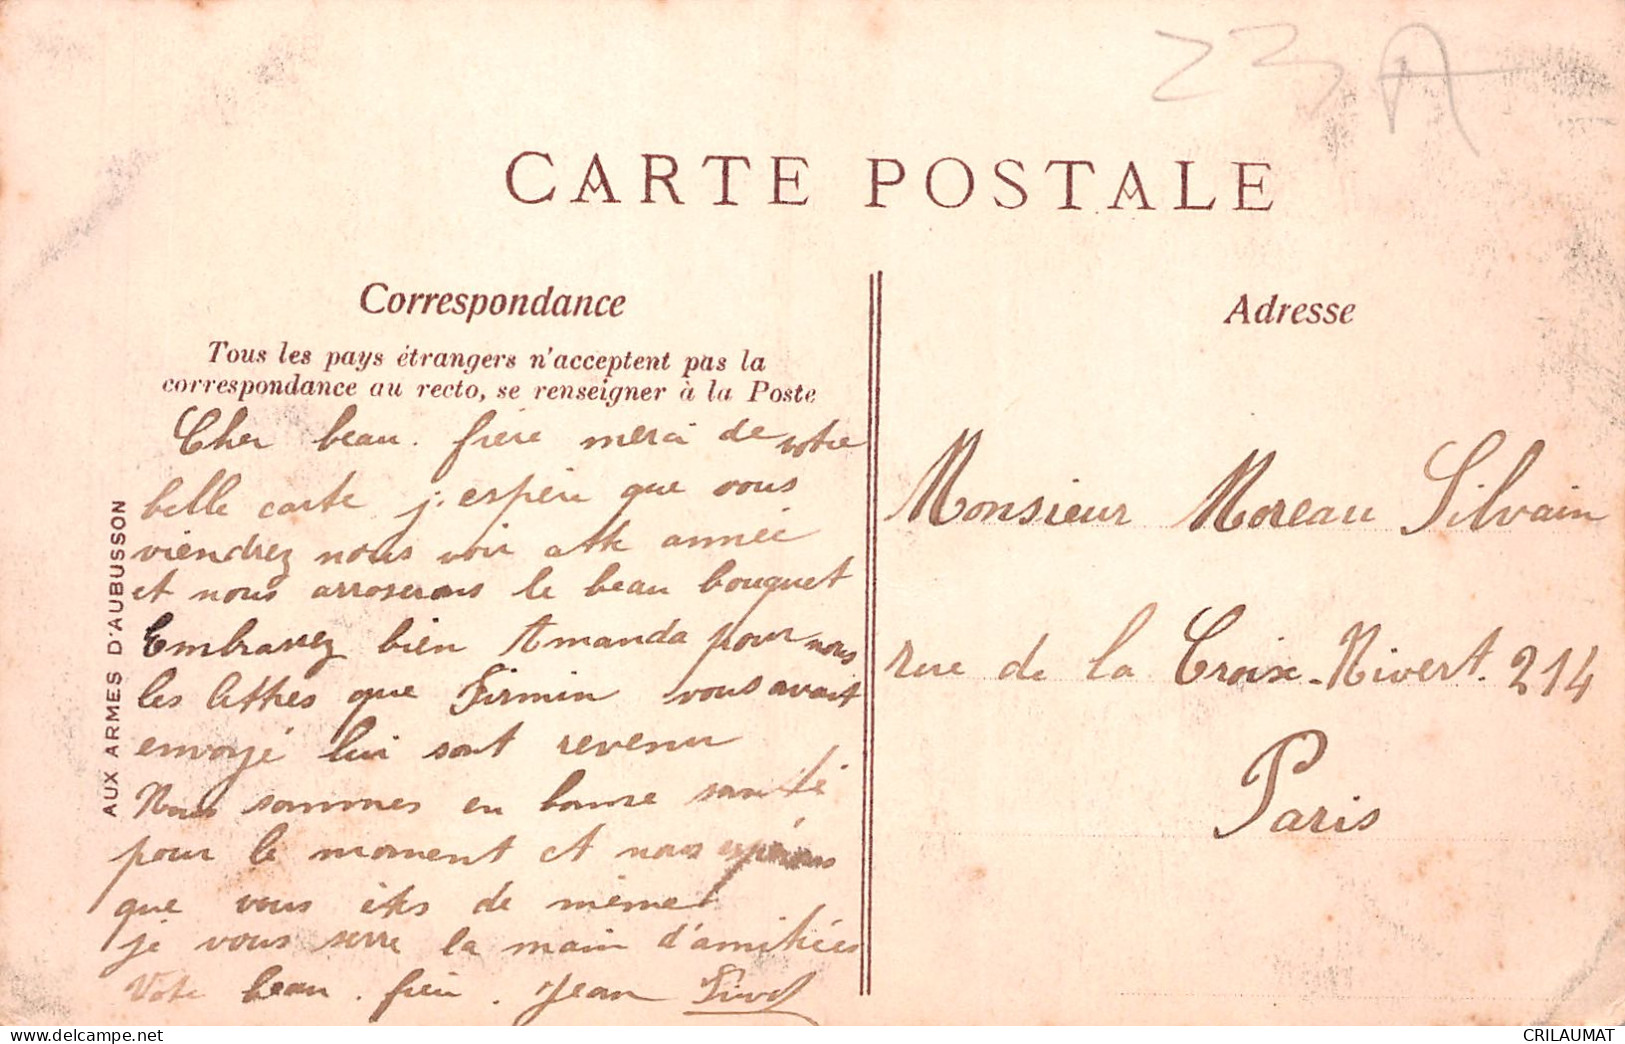 23 A
CARTE POSTALE
Correspondance
Tous les pays étrangers n'acceptent pas la
correspondance au recto, se renseigner à la Poste
Cher beau. frère merci de votre
belle carte j. espère que vous
viendrez nous voir atte année
et nous arroserons le beau bouquet
Embrassez bien Amanda pour nous
les lettres que Firmin vous avait
envoyé lui sont revenu
Nous sommes en bonne santé
pour le moment et nous espérons
que vous êtes de même
je vous serre la main d'amitiées
Votre beau. frère. Jean
AUX ARMES D'AUBUSSON
Adresse
Monsieur Moreau Silvain
rue de la Croix-Nivert. 214
Paris
CRILAUMAT